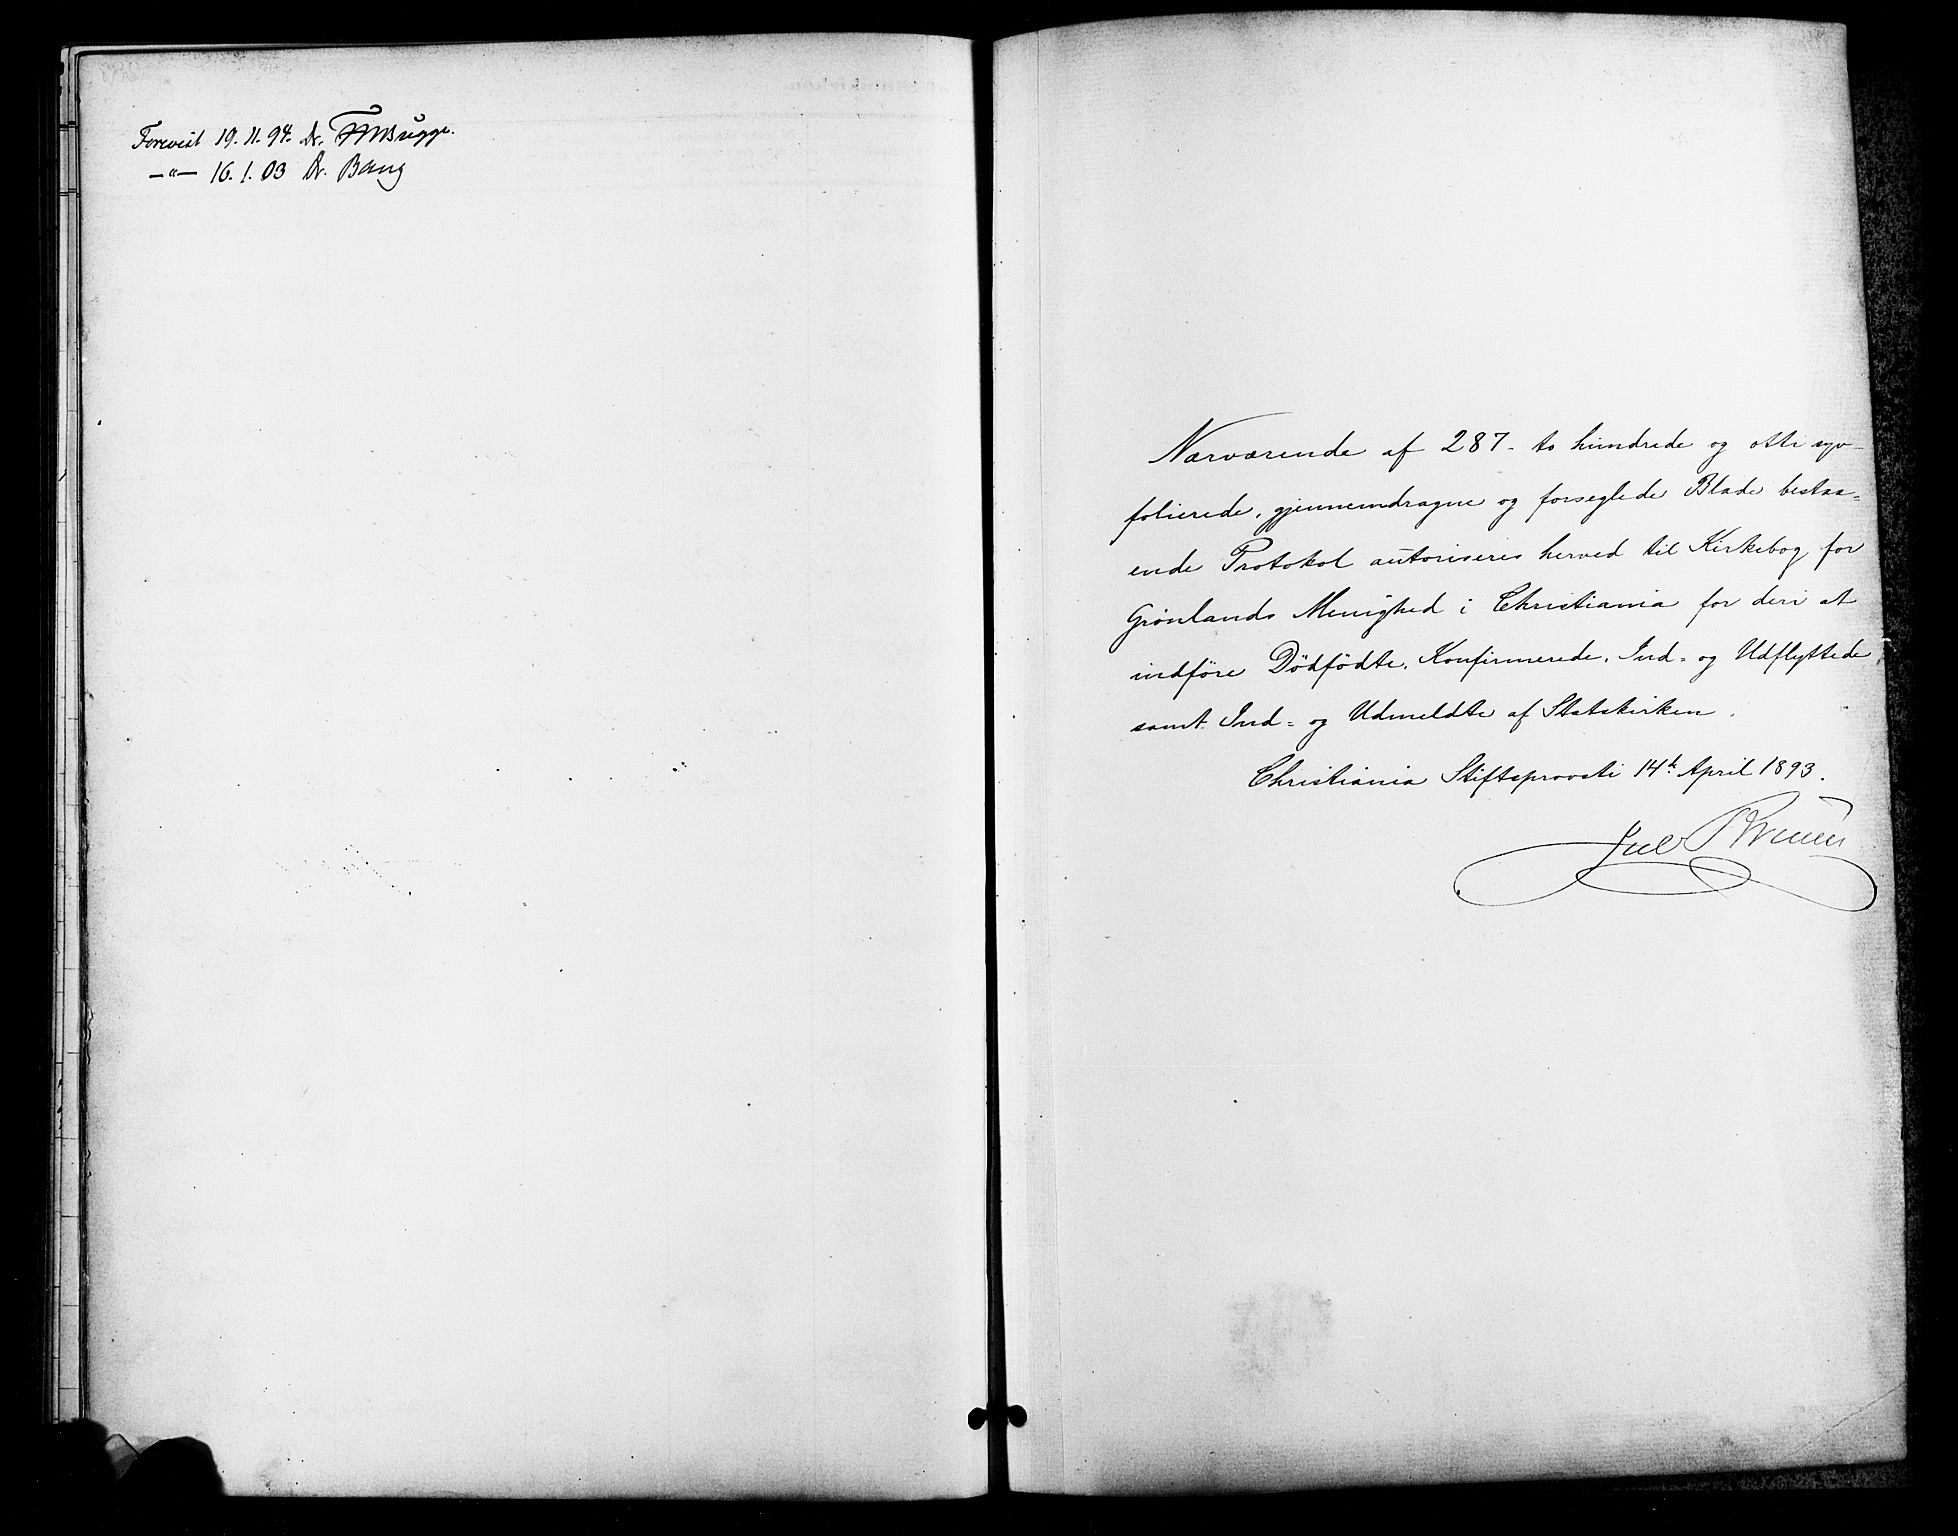 Forevist 19.11.94. Dr. FWBugge.
—"— 16.1.03 Dr. Bang
Nærværende af 287 - to hundrede og otti syv -
folierede, gjennemdragne og forseglede Blade bestaa=
ende Protokol autoriseres herved til Kirkebog for
Grønlands Menighed i Christiania for deri at
indføre Dödfödte, Konfirmerede, Ind= og Udflyttede,
samt Ind= og Udmeldte af Statskirken.
Christiania Stiftsprovsti 14de April 1893.
Jul